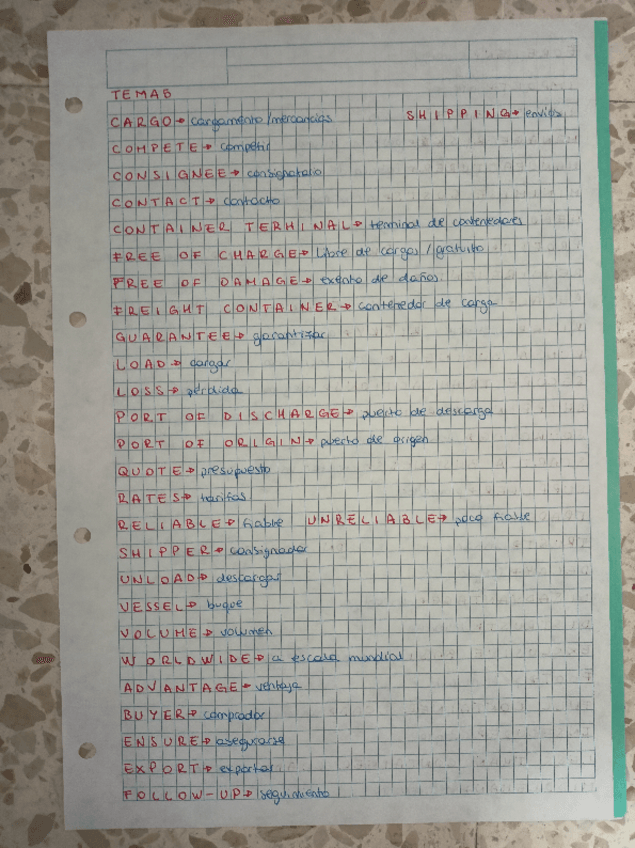 TEMA5
CARGO → cargamento/mercancías SHIPPING → envíos
COMPETE → competir
CONSIGNEE → consignatario
CONTACT → contacto
CONTAINER TERMINAL → terminal de contenedores
FREE OF CHARGE → libre de cargos/gratuito
FREE OF DAMAGE → exento de daños
FREIGHT CONTAINER → contenedor de carga
GUARANTEE → garantizar
LOAD → cargar
LOSS → pérdida
PORT OF DISCHARGE → puerto de descarga
PORT OF ORIGIN → puerto de origen
QUOTE → presupuesto
RATES → tarifas
RELIABLE → fiable UNRELIABLE → poco fiable
SHIPPER → consignador
UNLOAD → descargar
VESSEL → buque
VOLUME → volumen
WORLDWIDE → a escala mundial
ADVANTAGE → ventaja
BUYER → comprador
ENSURE → asegurarse
EXPORT → exportar
FOLLOW-UP → seguimiento